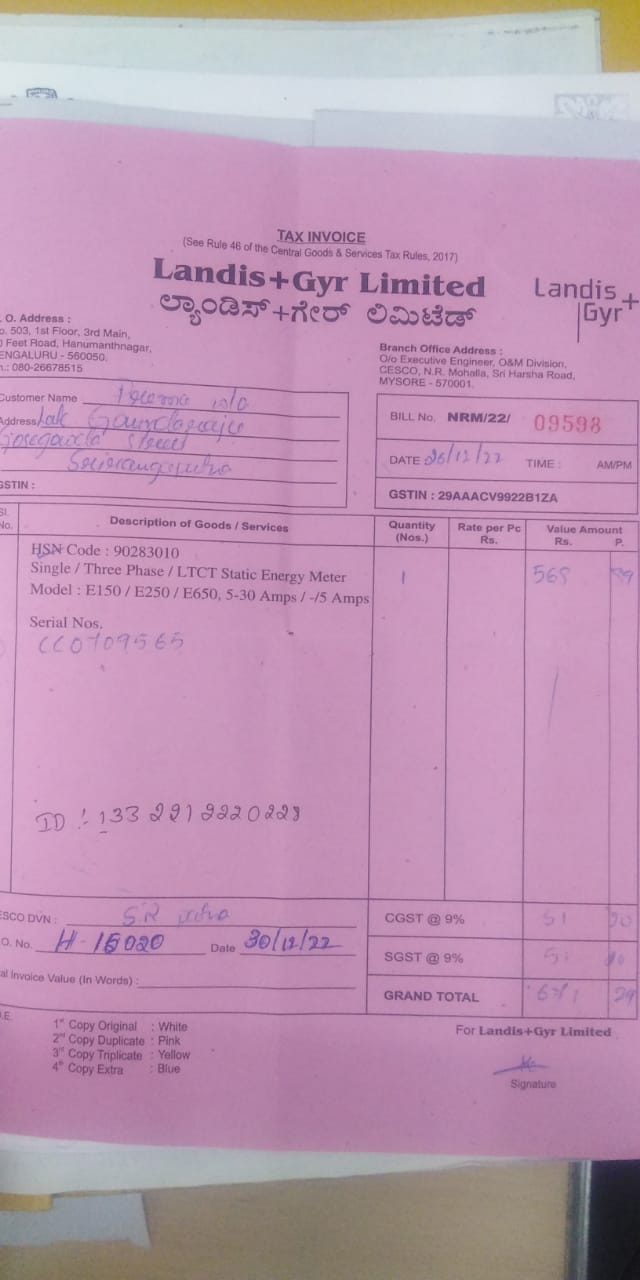 TAX INVOICE
(See Rule 46 of the Central Goods & Services Tax Rules, 2017)
Landis+Gyr Limited
ಲ್ಯಾಂಡಿಸ್+ಗೇರ್ ಲಿಮಿಟೆಡ್
Landis+
Gyr
. O. Address :
o. 503, 1st Floor, 3rd Main,
Feet Road, Hanumanthnagar,
ENGALURU - 560050.
n.: 080-26678515
Branch Office Address :
O/o Executive Engineer, O&M Division,
CESCO, N.R. Mohalla, Sri Harsha Road,
MYSORE - 570001.
Customer Name
Address Late
GSTIN :
BILL No. NRM/22/ 09598
DATE 26/12/22 TIME : AM/PM
GSTIN : 29AAACV9922B1ZA
Sl. No. Description of Goods / Services Quantity (Nos.) Rate per Pc Rs. Value Amount Rs. P.
HSN Code : 90283010
Single / Three Phase / LTCT Static Energy Meter 1 568 89
Model : E150 / E250 / E650, 5-30 Amps / -/5 Amps
Serial Nos.
CC0709565
ID :- 133 2212220223
ESCO DVN : SR
.O. No. H-15020 Date 30/12/22
al Invoice Value (In Words) :
CGST @ 9% 51 20
SGST @ 9% 51 20
GRAND TOTAL 671 29
.E.
1st Copy Original : White
2nd Copy Duplicate : Pink
3rd Copy Triplicate : Yellow
4th Copy Extra : Blue
For Landis+Gyr Limited
Signature